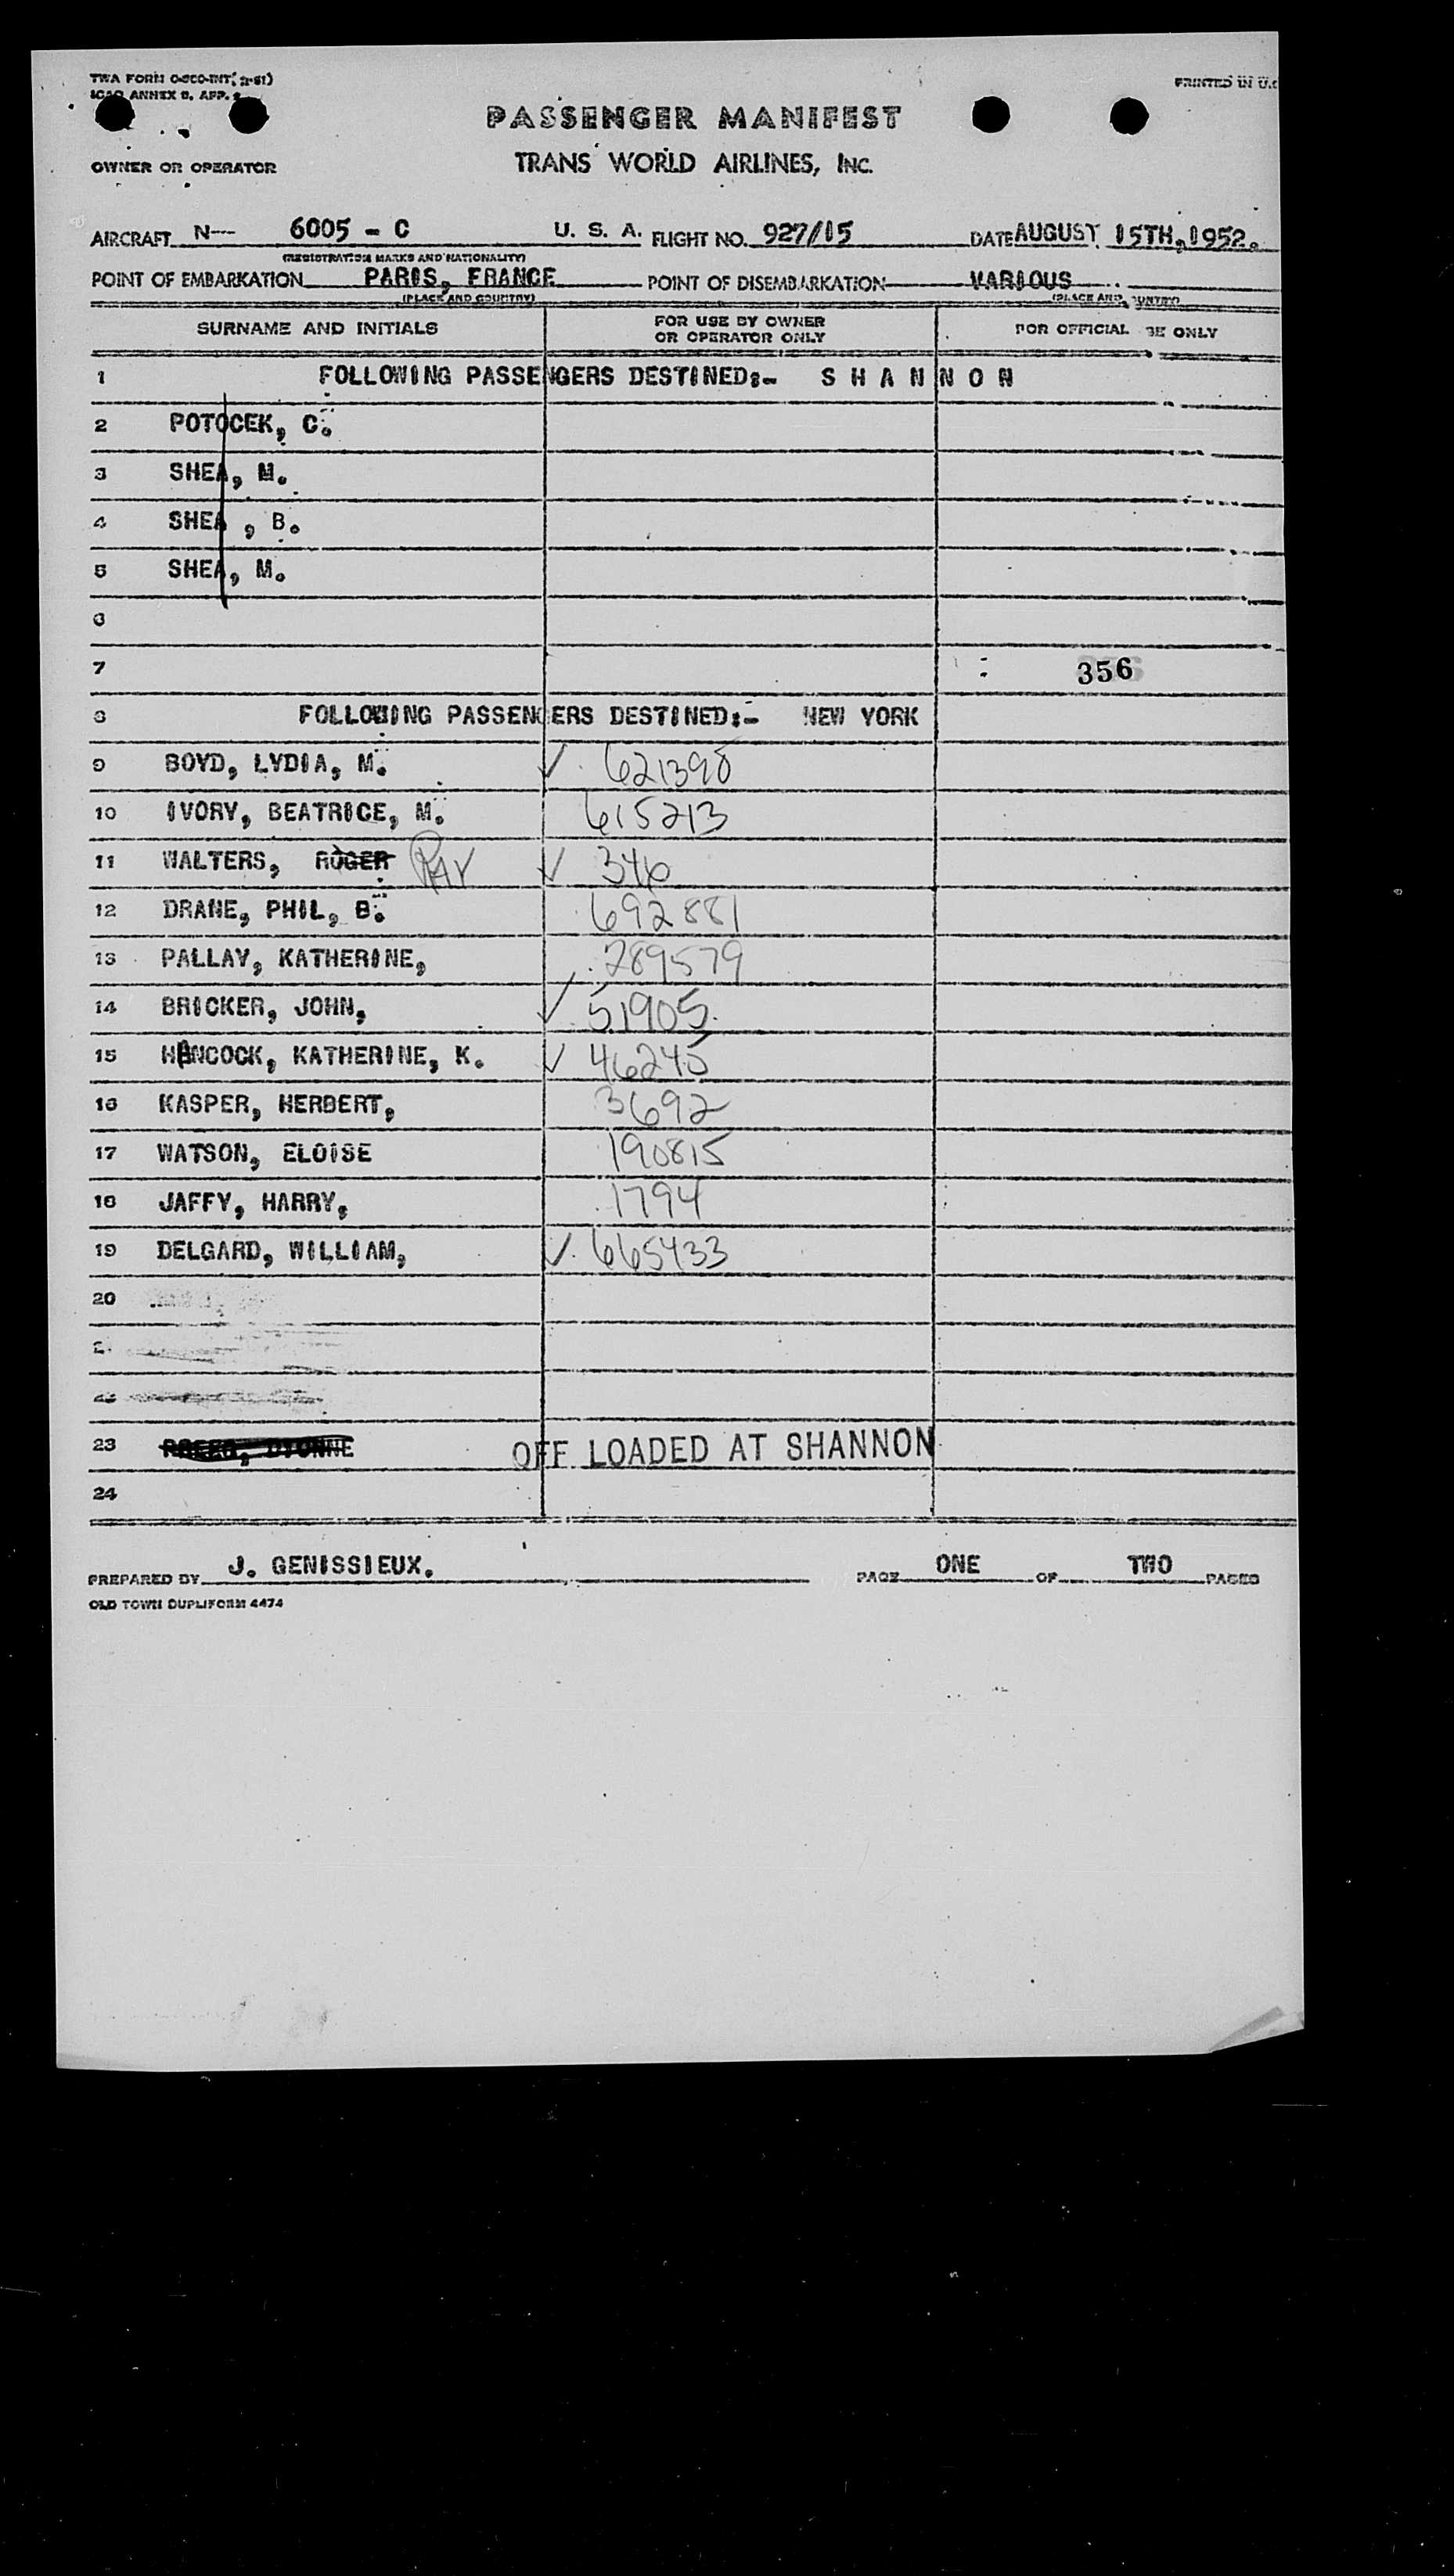 TWA FORM O-SCO-INT( 2-51)
ICAO ANNEX 9, APP. 2
PRINTED IN U.S
PASSENGER MANIFEST
OWNER OR OPERATOR
TRANS WORLD AIRLINES, INC.
AIRCRAFT N— 6005 - C U. S. A. FLIGHT NO. 927/15 DATE AUGUST 15TH, 1952.
(REGISTRATION MARKS AND NATIONALITY)
POINT OF EMBARKATION PARIS, FRANCE POINT OF DISEMBARKATION VARIOUS
(PLACE AND COUNTRY)
SURNAME AND INITIALS FOR USE BY OWNER OR OPERATOR ONLY FOR OFFICIAL USE ONLY
1 FOLLOWING PASSENGERS DESTINED:- S H A N N O N
2 POTOCEK, C.
3 SHEA, M.
4 SHEA , B.
5 SHEA, M.
6
7 356
8 FOLLOWING PASSENGERS DESTINED:- NEW YORK
9 BOYD, LYDIA, M. ✓ 621398
10 IVORY, BEATRICE, M. 615213
11 WALTERS, ROGER RAY ✓ 346
12 DRANE, PHIL, B. 692881
13 PALLAY, KATHERINE, 289579
14 BRICKER, JOHN, ✓ 51905
15 HANCOCK, KATHERINE, K. ✓ 46245
16 KASPER, HERBERT, 3692
17 WATSON, ELOISE 190815
18 JAFFY, HARRY, 1794
19 DELGARD, WILLIAM, ✓ 665433
20
23 OFF LOADED AT SHANNON
24
PREPARED BY J. GENISSIEUX. PAGE ONE OF TWO PAGES
OLD TOWN DUPLIFORM 4474